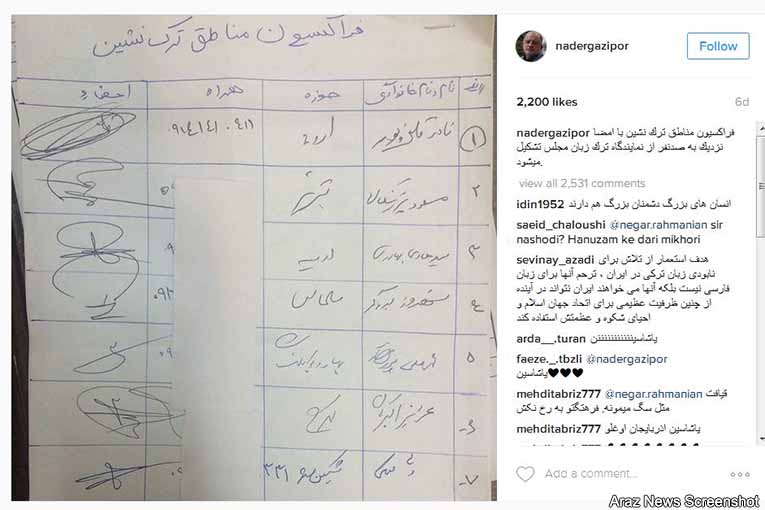 فراکسیون مناطق ترک نشین
ردیف نام و نام خانوادگی حوزه همراه امضاء
۱ نادر قاضی پور ارومیه
۲ تبریز
۳ ارومیه
۴ سلماس
۵
۶
۷
nadergazipor
Follow
2,200 likes 6d
nadergazipor فراکسیون مناطق ترك نشین با امضا
نزدیك به صدنفر از نمایندگاه ترك زبان مجلس تشکیل
میشود.
view all 2,531 comments
idin1952 انسان های بزرگ دشمنان بزرگ هم دارند
saeid_chaloushi @negar.rahmanian sir
nashodi? Hanuzam ke dari mikhori
sevinay_azadi هدف استعمار از تلاش برای
نابودی زبان ترکی در ایران ، ترحم آنها برای زبان
فارسی نیست بلکه آنها می خواهند ایران نتواند در آینده
از چنین ظرفیت عظیمی برای اتحاد جهان اسلام و
احیای شکوه و عظمتش استفاده کند
arda__.turan یاشاسیننننننننننن
faeze._.tbzli @nadergazipor
یاشاسین🖤🖤🖤
mehditabriz777 @negar.rahmanian قیافت
مثل سگ میمونه. فرهتگتو به رخ نکش
mehditabriz777 یاشاسین اذربایجان اوغلو
Add a comment...
Araz News Screenshot